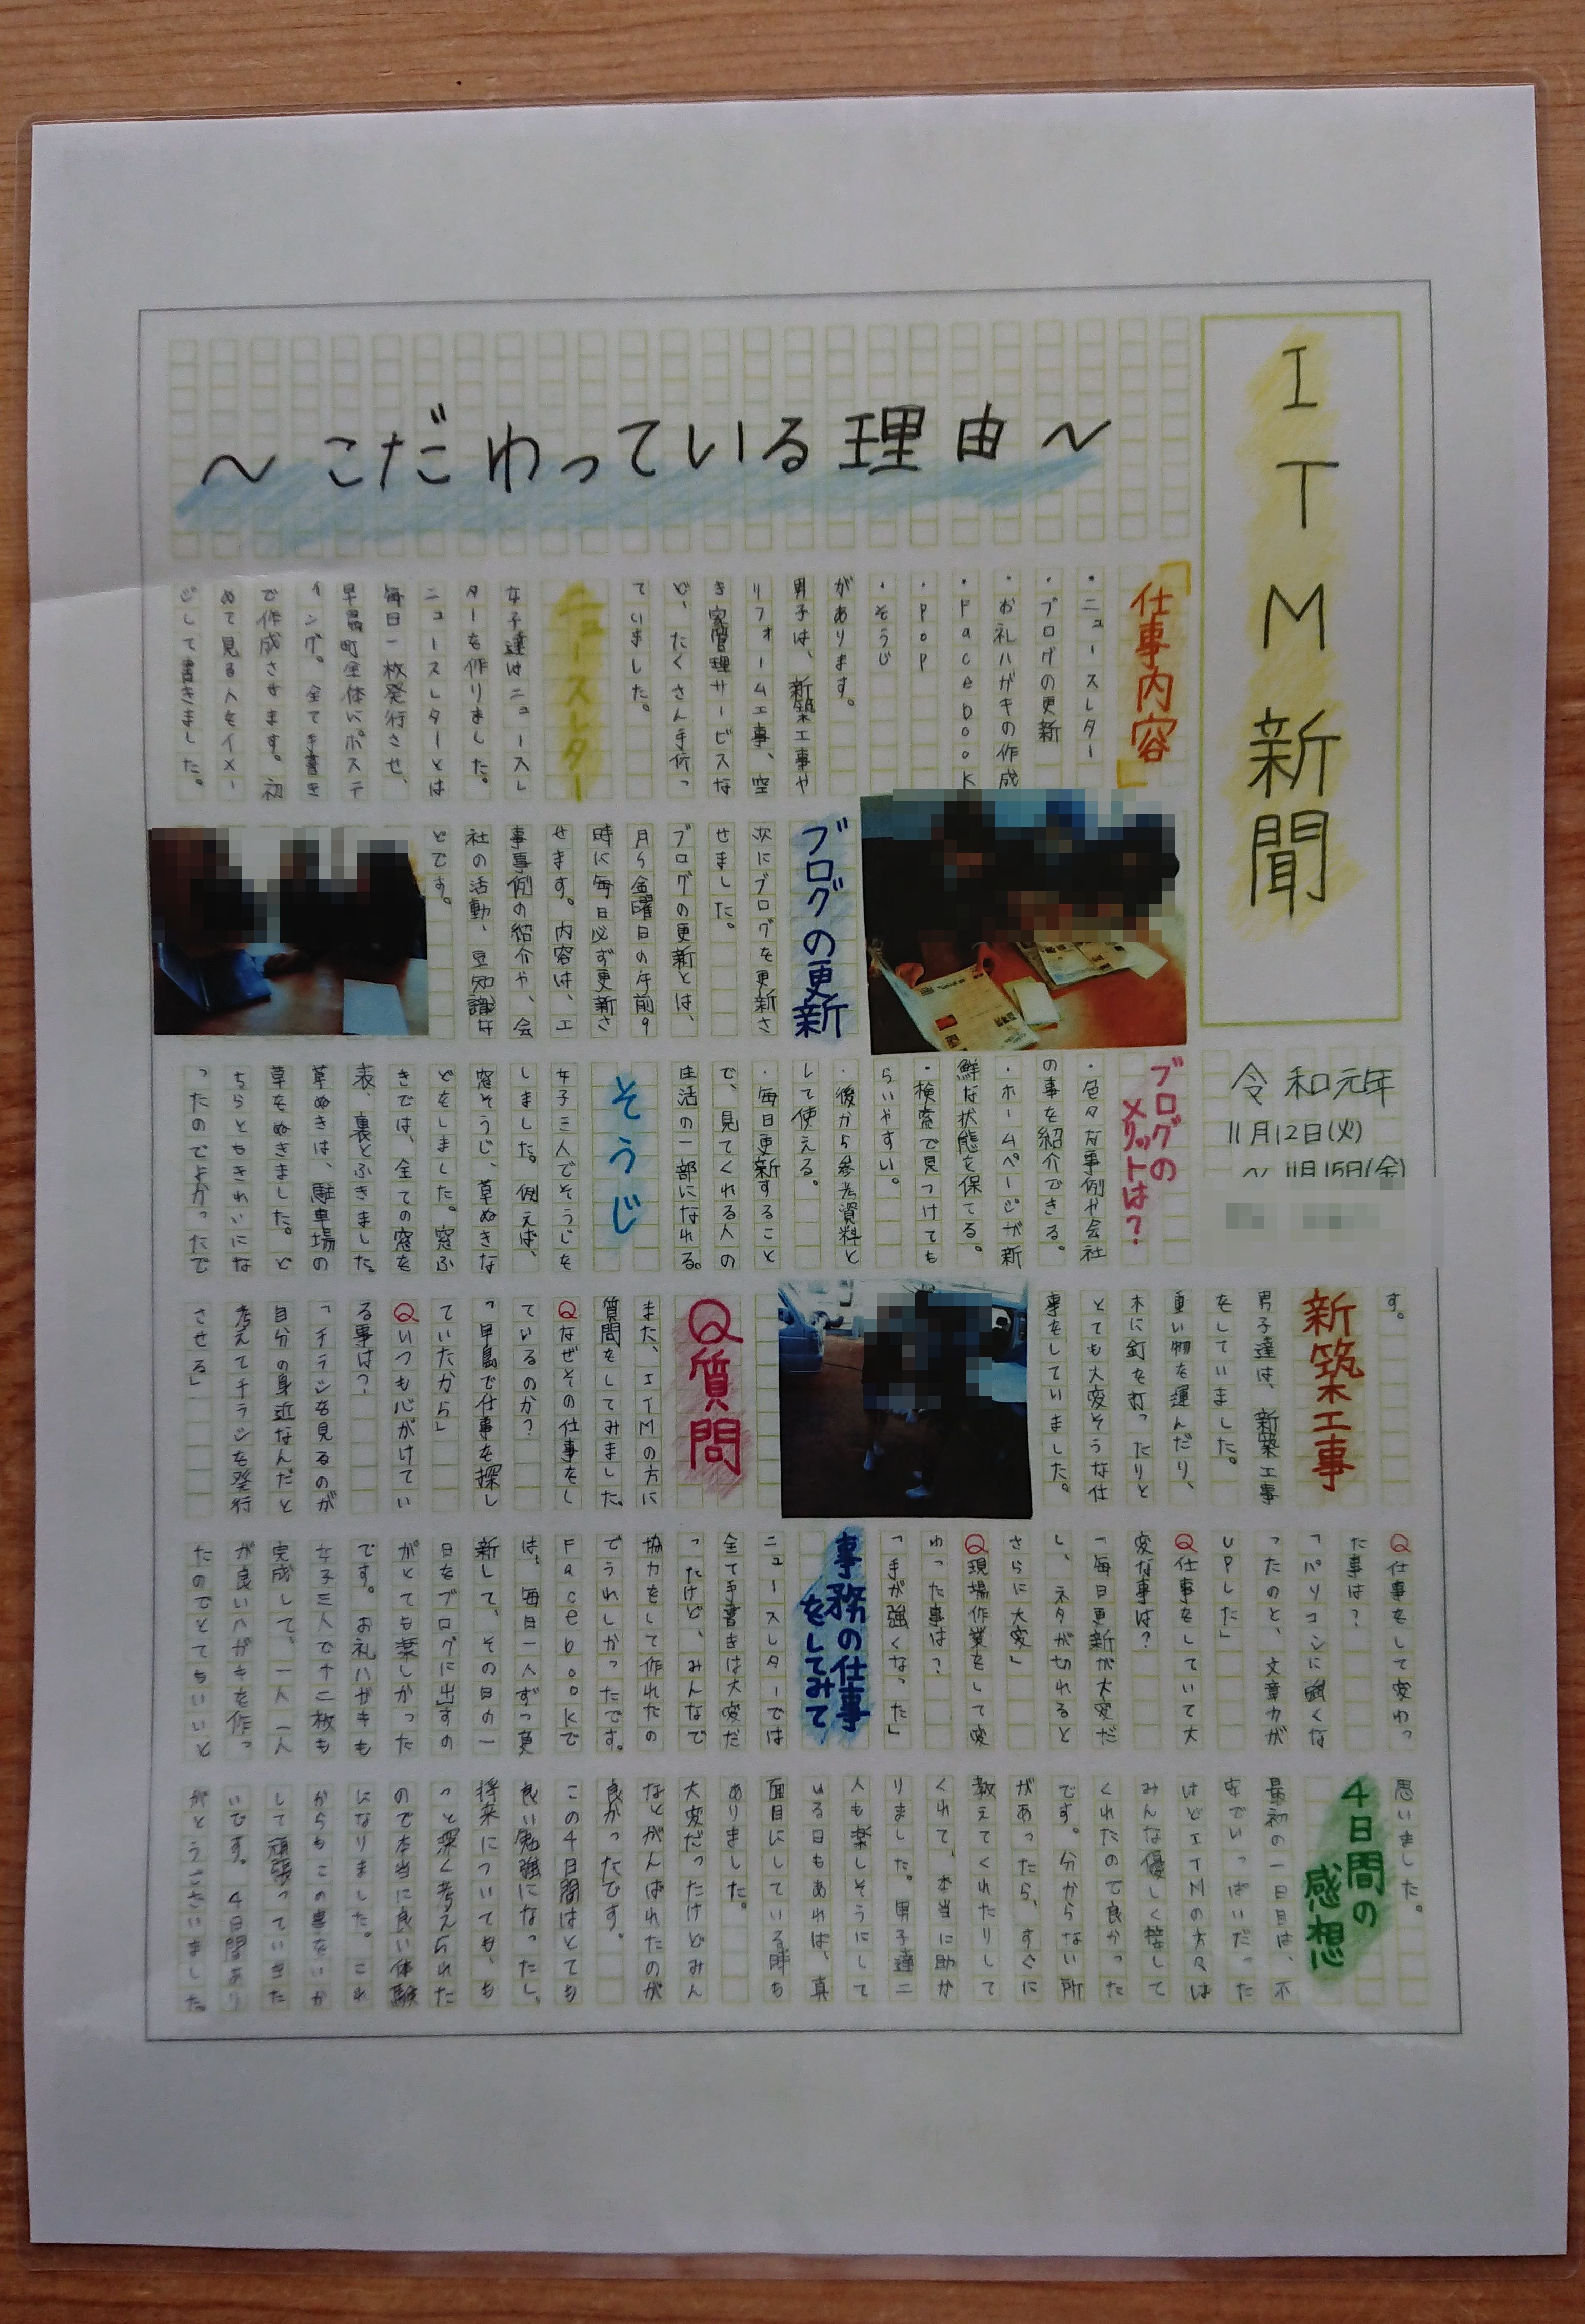 ITM新聞
令和元年
11月12日(火)
～11月15日(金)
～こだわっている理由～
「仕事内容」
・ニュースレター
・ブログの更新
・お礼ハガキの作成
・Facebook
・POP
・そうじ
があります。
男子は、新築工事や
リフォーム工事、空
き家管理サービスな
ど、たくさん手伝っ
ていました。
ニュースレター
女子達はニュースレ
ターを作りました。
ニュースレターとは
毎日一枚発行させ、
早島町全体にポステ
ィング。全て手書き
で作成さます。初
めて見る人をイメー
ジして書きました。
ブログの更新
次にブログを更新さ
せました。
ブログの更新とは、
月から金曜日の午前9
時に毎日必ず更新さ
せます。内容は、工
事事例の紹介や、会
社の活動、豆知識な
どです。
ブログの
メリットは?
・色々な事例や会社
の事を紹介できる。
・ホームページが新
鮮な状態を保てる。
・検索で見つけても
らいやすい。
・後から参考資料と
して使える。
・毎日更新すること
で、見てくれる人の
生活の一部になれる。
そうじ
女子三人でそうじを
しました。例えば、
窓そうじ、草ぬきな
どをしました。窓ふ
きでは、全ての窓を
表、裏とふきました。
草ぬきは、駐車場の
草をぬきました。ど
ちらともきれいにな
ったのでよかったで
す。
新築工事
男子達は、新築工事
をしていました。
重い物を運んだり、
木に釘を打ったりと
とても大変そうな仕
事をしていました。
Q質問
また、ITMの方に
質問をしてみました。
Qなぜその仕事をし
ているのか?
「早島で仕事を探し
ていたから」
Qいつも心がけてい
る事は?
「チラシを見るのが
自分の身近なんだと
考えてチラシを発行
させる」
Q仕事をして変わっ
た事は?
「パソコンに強くな
ったのと、文章力が
UPした」
Q仕事をしていて大
変な事は?
「毎日更新が大変だ
し、ネタが切れると
さらに大変」
Q現場作業をして変
わった事は?
「手が強くなった」
事務の仕事
をしてみて
ニュースレターでは
全て手書きは大変だ
ったけど、みんなで
協力をして作れたの
でうれしかったです。
Facebookで
は、毎日一人ずつ更
新して、その日の一
日をブログに出すの
がとても楽しかった
です。お礼ハガキも
女子三人で十二枚も
完成して、一人一人
が良いハガキを作っ
たのでとてもいいと
思いました。
4日間の
感想
最初の一日目は、不
安でいっぱいだった
けどITMの方々は
みんな優しく接して
くれたので良かった
です。分からない所
があったら、すぐに
教えてくれたりして
くれて、本当に助か
りました。男子達二
人も楽しそうにして
いる日もあれば、真
面目にしている時も
ありました。
大変だったけどみん
ながんばれたのが
良かったです。
この4日間はとても
良い勉強になったし、
将来についても、も
っと深く考えられた
ので本当に良い体験
になりました。これ
からもこの事をいか
して頑張っていきた
いです。4日間あり
がとうございました。